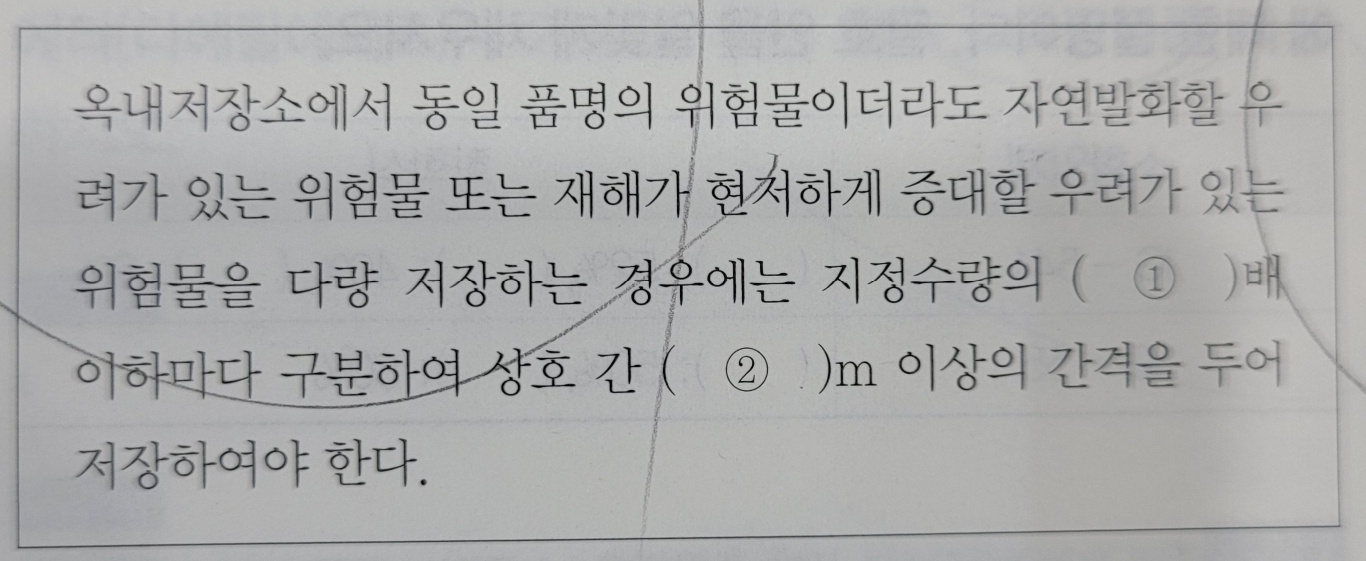 옥내저장소에서 동일 품명의 위험물이더라도 자연발화할 우
려가 있는 위험물 또는 재해가 현저하게 증대할 우려가 있는
위험물을 다량 저장하는 경우에는 지정수량의 ( ① )배
이하마다 구분하여 상호 간 ( ② )m 이상의 간격을 두어
저장하여야 한다.